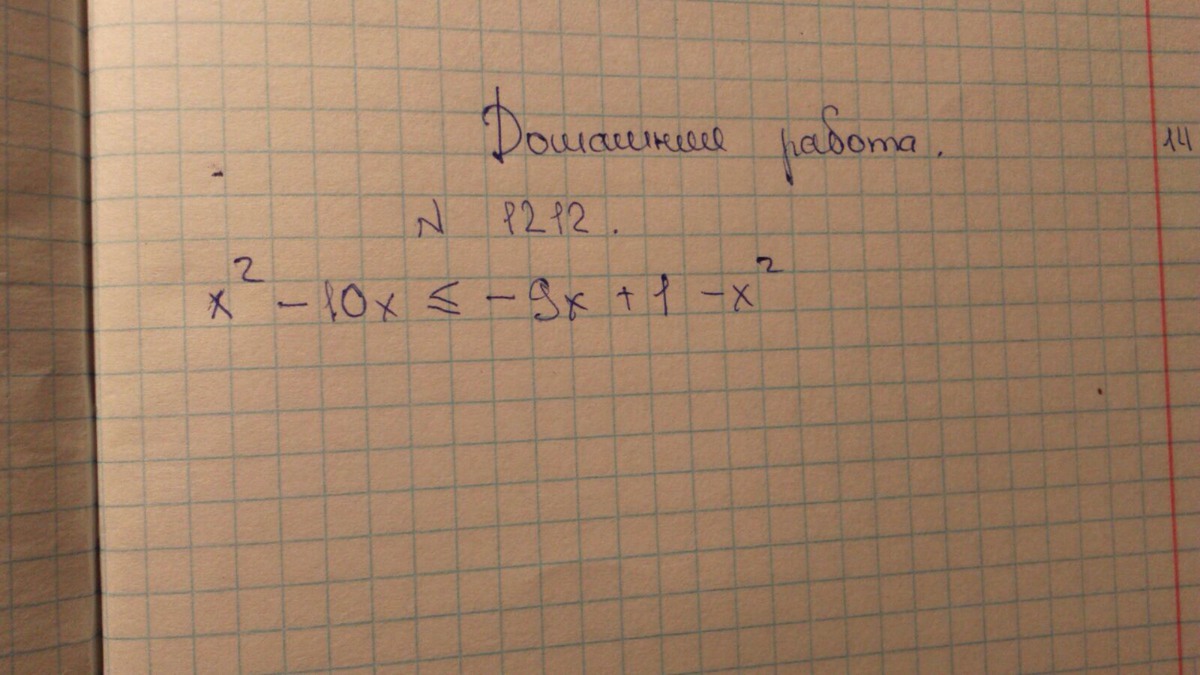 Домашняя работа.
14
N 1212.
x² - 10x ≤ - 9x + 1 - x²